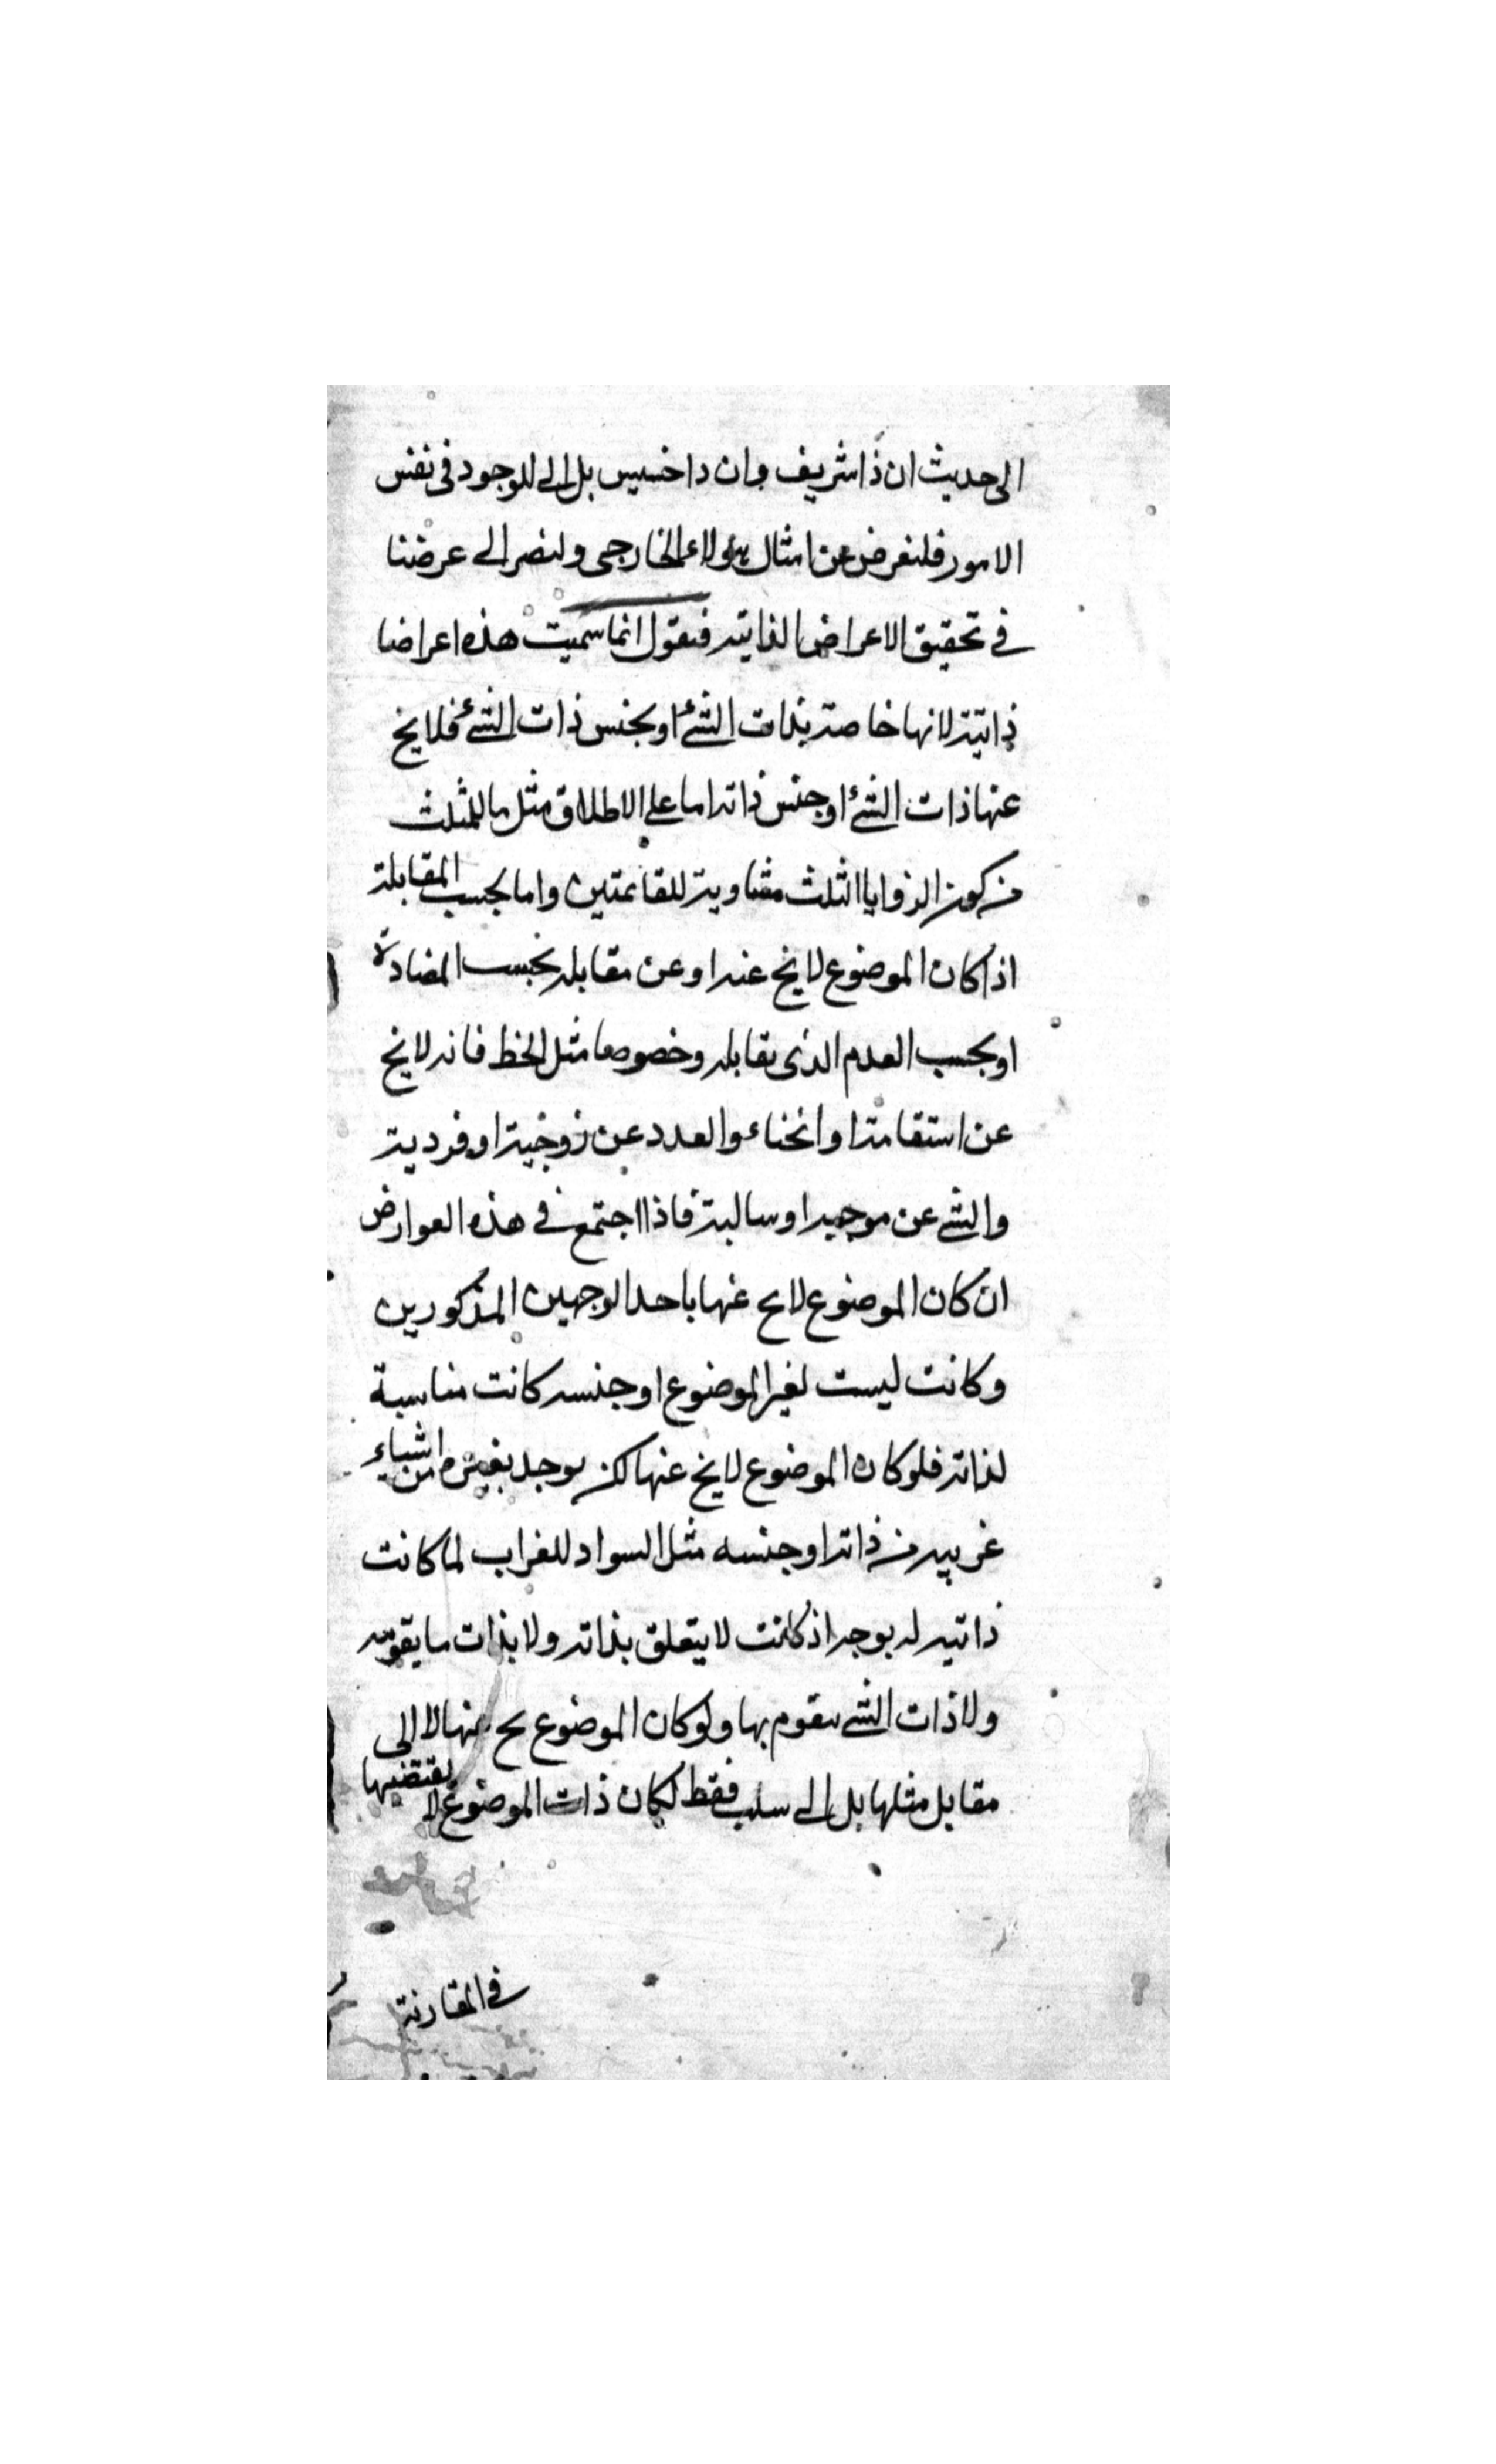 الى حديث ان ذا شريف وان ذا خسيس بل الى الموجود فى نفس
الامور فلنعرض عن امثال هولاء الخارجى ولنصر الى عرضنا
فى تحقيق الاعراض الذاتية فنقول انما سميت هذه اعراضا
ذاتية لانها خاصة بذات الشئ او بجنس ذات الشئ فلا يخ
عنها ذات الشئ او جنس ذاته اما على الاطلاق مثل ما للمثلث
من كون الزوايا الثلث مساوية للقائمتين واما بحسب المقابلة
اذا كان الموضوع لا يخ عنه او عن مقابله بحسب المضادة
او بحسب العدم الذى يقابله وخصوصا مثل الخط فانه لا يخ
عن استقامة او انحناء والعدد عن زوجية او فردية
والشى عن موجبه او سالبة فاذا اجتمع فى هذه العوارض
ان كان الموضوع لا يح عنها باحد الوجهين المذكورين
وكانت ليست لغير الموضوع او جنسه كانت مناسبة
لذاته فلو كان الموضوع لا يخ عنها لكن يوجد بغيره من اشياء
غريبه من ذاته او جنسه مثل السواد للغراب لما كانت
ذاتيه له بوجه اذ كانت لا يتعلق بذاته ولا بذات ما يقومه
ولا ذات الشى يتقوم بها ولو كان الموضوع يح عنها لا الى
مقابل مثلها بل الى سلب فقط لكان ذات الموضوع لا يقتضيها
فى المقارنة